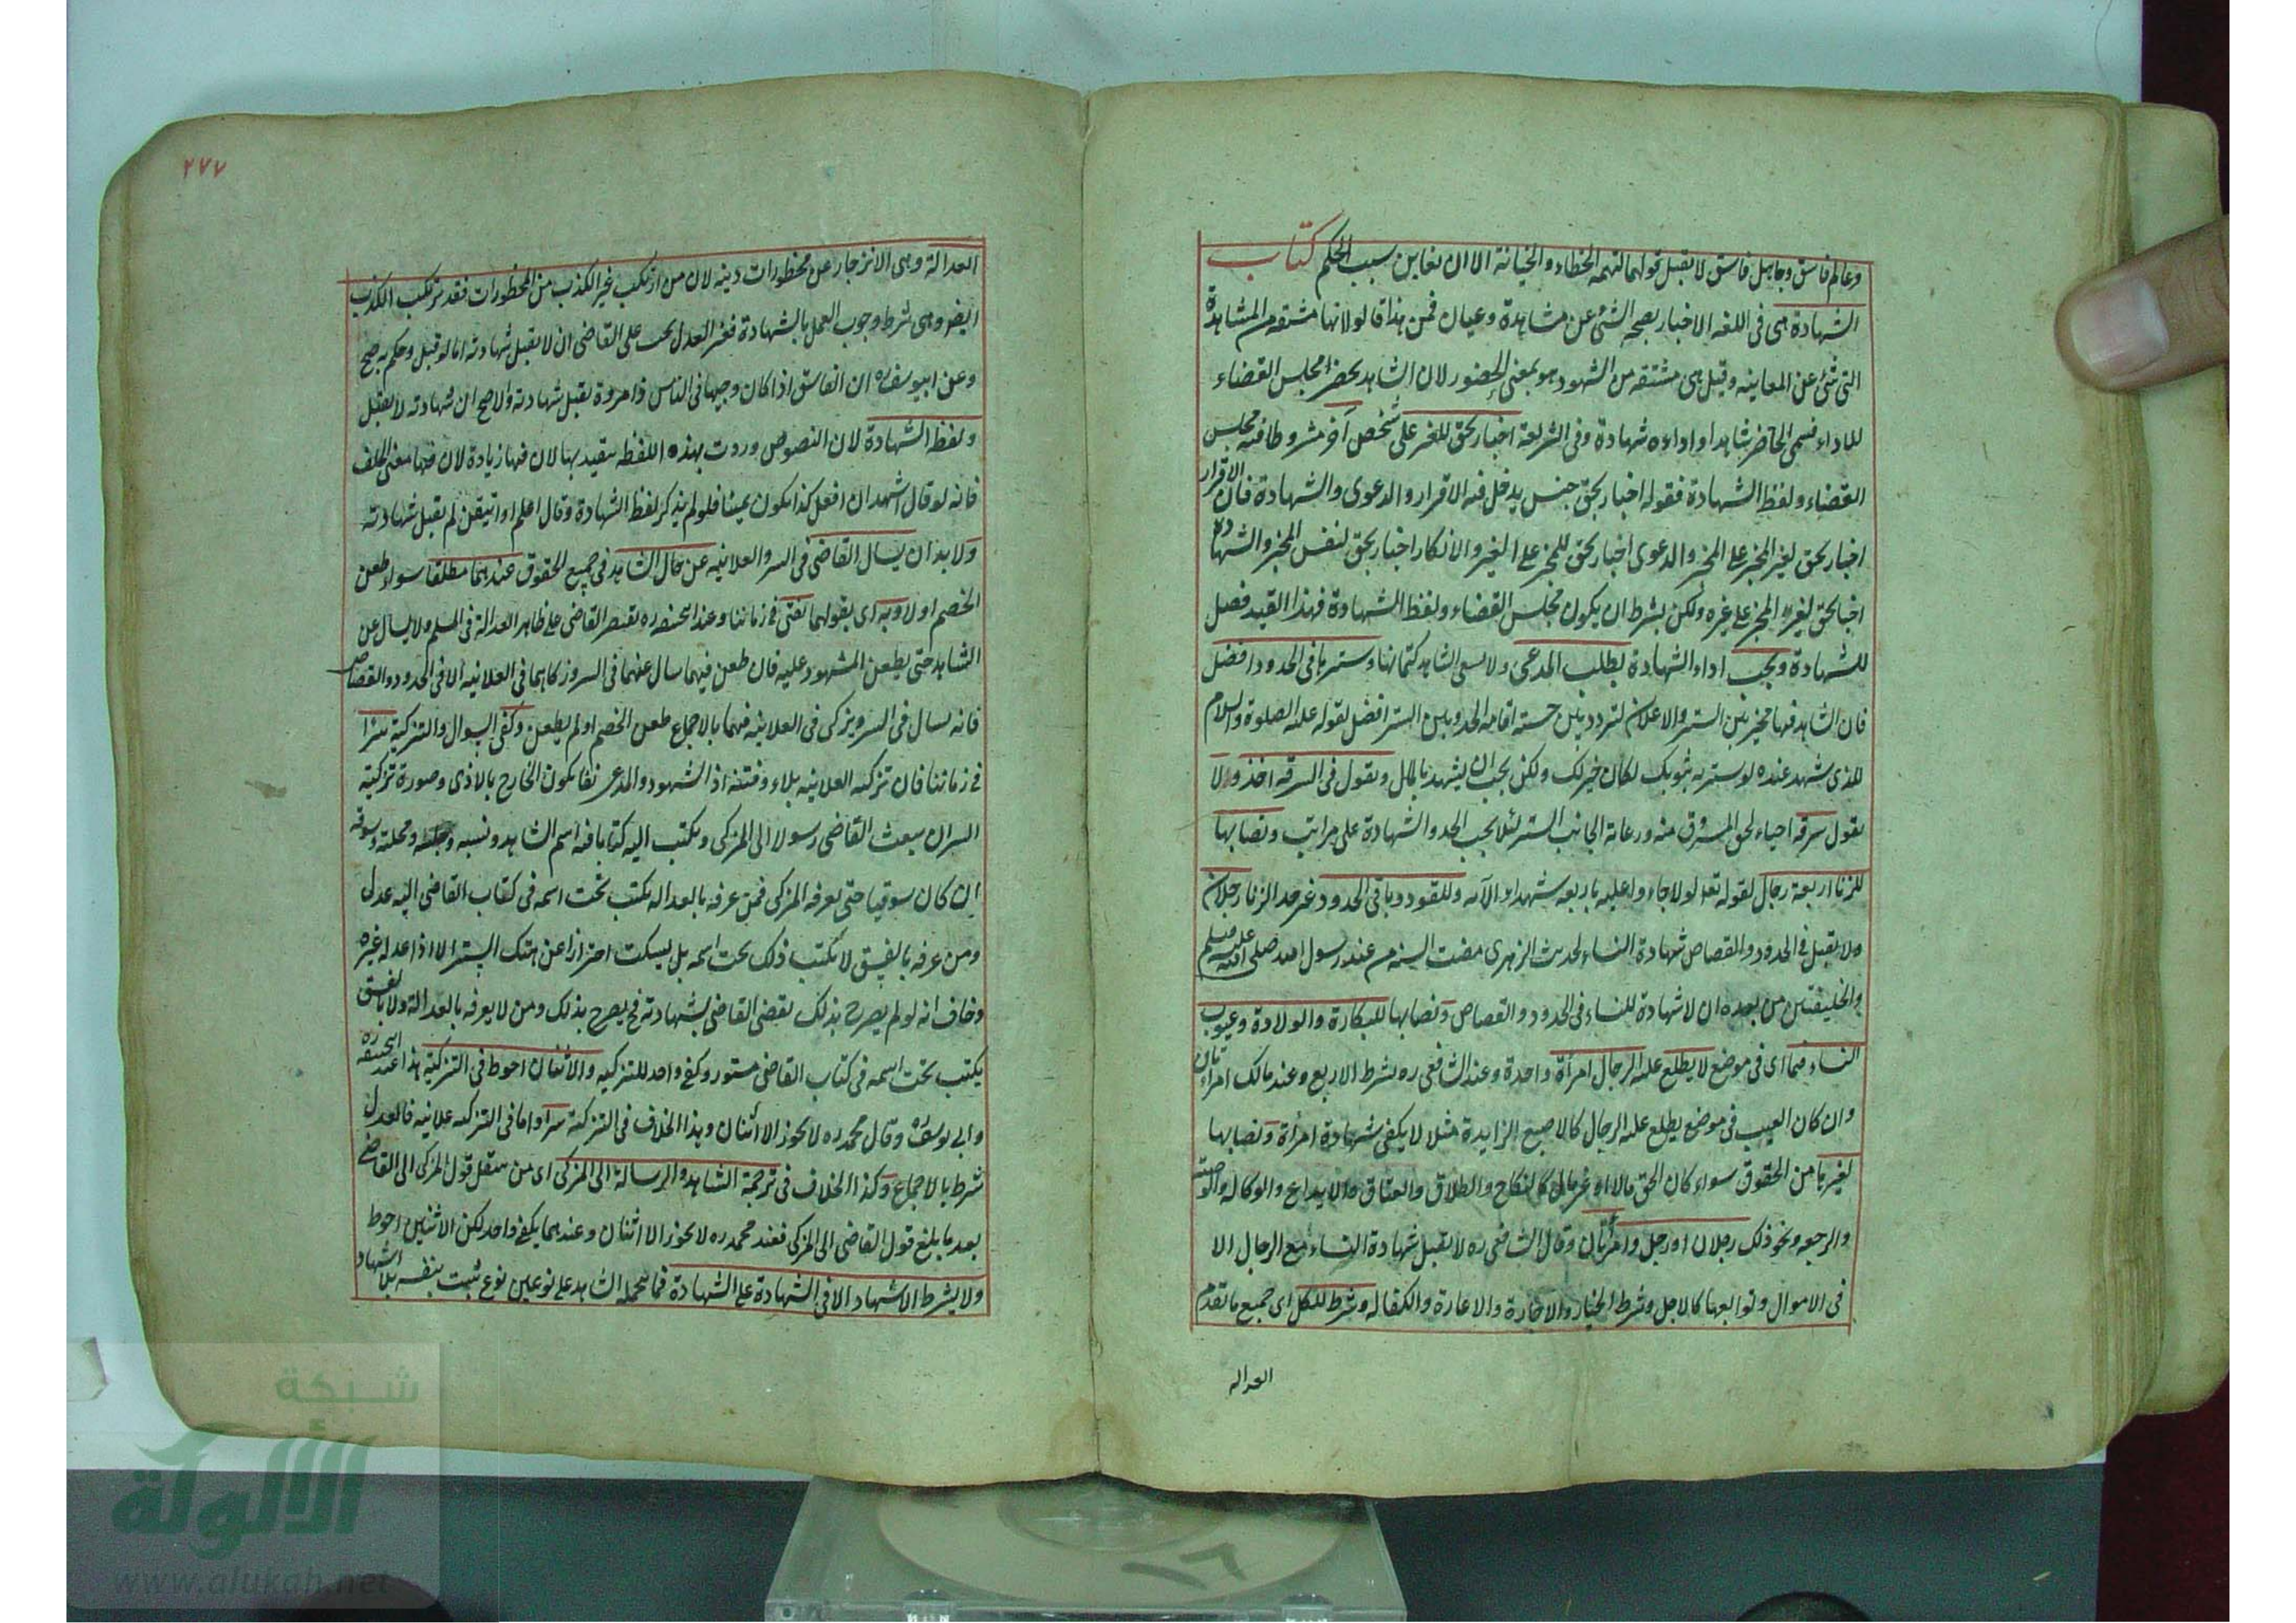 وعالم فاسق وجاهل فاسق لا يقبل قولهما لتهمه الخطاء والخيانة الا ان يعاين سبب الحكم كتاب
الشهادة هى فى اللغه الاخبار بصحه الشئ عن مشاهدة وعيان فمن هذا قالو لانها مشتقه من المشاهدة
التى تنئ عن المعاينه وقيل هى مشتقه من الشهود هو بمعنى الحضور لان الشاهد يحضر مجلس القضاء
للاداء فسمى الحاضر شاهدا واداءه شهادة وفى الشريعة اخبار بحق للغير على شخص آخر مشروطا فيه مجلس
القضاء ولفظ الشهادة فقوله اخبار بحق جنس يدخل فيه الاقرار والدعوى والشهادة فان الاقرار
اخبار بحق لغير المخبر على المخبر والدعوى اخبار بحق للمخبر على الغير والانكار اخبار بحق لنفس المخبر والشهادة
اخبار بحق لغير المخبر على غيره ولكن بشرط ان يكون مجلس القضاء ولفظ الشهادة فهذا القيد فصل
للشهادة ويجب اداء الشهادة بطلب المدعى ولا يسع الشاهد كتمانها وسترها فى الحدود افضل
فان الشاهد فيها مخير بين الستر والاعلان لتردد بين حسبة اقامه الحد وبين الستر افضل لقوله عليه الصلوة والسلام
للذى شهد عنده لو سترته بثوبك لكان خير لك ولكن يجب ان يشهد بالمال ويقول فى السرقه اخذ ولا
يقول سرقه احياء لحق المسروق منه ورعاية لجانب الستر لئلا يجب الحد والشهادة على مراتب ونصابها
للزنا اربعة رجال لقوله تع لولا جاءوا عليه باربعه شهداء الآيه وللقود وباقى الحدود غير حد الزنا رجلان
ولا يقبل فى الحدود والقصاص شهادة النساء لحديث الزهرى مضت السنه من عند رسول الله صلى الله عليه وسلم
والخليفتين من بعده ان لا شهادة للنساء فى الحدود والقصاص ونصابها للبكارة والولادة وعيوب
النساء فيما اى فى موضع لا يطلع عليه الرجال امرأة واحدة وعند الشافعى ره يشرط الاربع وعند مالك امرأتان
وان كان العيب فى موضع يطلع عليه الرجال كالاصبع الزايدة مثلا لا يكفى شهادة امرأة ونصابها
لغيرها من الحقوق سواء كان الحق مالا او غير مال كالنكاح والطلاق والعتاق والايداع والوكاله والوصية
والرجعه ونحو ذلك رجلان او رجل وامرأتان وقال الشافعى ره لا يقبل شهادة النساء مع الرجال الا
فى الاموال وتوابعها كالاجل وشرط الخيار والاجارة والاعارة والكفاله وشرط للكل اى جميع ما تقدم
العداله
٢٧٧
العدالة وهى الانزجار عن محظورات دينه لان من ارتكب غير الكذب من المحظورات فقد يرتكب الكذب
ايضا وهى شرط وجوب العمل بالشهادة فغير العدل يجب على القاضى ان لا يقبل شهادته اما لو قبل وحكم به صح
وعن ابيوسف ره ان الفاسق اذا كان وجيها فى الناس ذا مروة يقبل شهادته والاصح ان شهادته لا يقبل
ولفظ الشهادة لان النصوص وردت بهذه اللفظه يتقيد بها لان فيها زيادة لان فيها معنى الحلف
فانه لو قال اشهد ان افعل كذا يكون يمينا فلو لم يذكر لفظ الشهادة وقال اعلم او اتيقن لم يقبل شهادته
ولا بد ان يسال القاضى فى السر والعلانيه عن حال الشاهد فى جميع الحقوق عندهما مطلقا سواء طعن
الخصم او لا وبه اى بقولهما يفتى فى زماننا وعند ابيحنيفه ره يقتصر القاضى على ظاهر العدالة فى المسلم ولا يسال عن
الشاهد حتى يطعن المشهود عليه فان طعن فيهما سال عنهما فى السر وزكاهما فى العلانيه الا فى الحدود والقصاص
فانه يسال فى السر ويزكى فى العلانيه فيهما بالاجماع طعن الخصم او لم يطعن وكفى السوال والتزكية سرا
فى زماننا فان تزكيه العلانيه بلاء وفتنه اذ الشهود والمدعى يقابلون الجارح بالاذى وصورة تزكية
السر ان يبعث القاضى رسولا الى المزكى ويكتب اليه كتابا فيه اسم الشاهد ونسبه وحليته ومحلته وسوقه
ان كان سوقيا حتى يعرفه المزكى فمن عرفه بالعداله يكتب تحت اسمه فى كتاب القاضى اليه عدل
ومن عرفه بالفسق لا يكتب ذلك تحت اسمه بل يسكت احترازا عن هتك الستر الا اذا عدله غيره
وخاف انه لو لم يصرح بذلك يقضى القاضى بشهادته فح يصرح بذلك ومن لا يعرفه بالعدالة ولا بالفسق
يكتب تحت اسمه فى كتاب القاضى مستور وكفى واحد للتزكيه والاثنان احوط فى التزكية هذا عند ابيحنيفه ره
وابى يوسف ره وقال محمد ره لا يجوز الا اثنان وهذا الخلاف فى التزكية سرا واما فى التزكيه علانيه فالعدل
شرط بالاجماع وكذا الخلاف فى ترجمة الشاهد والرسالة الى المزكى اى من ينقل قول المزكى الى القاضى
بعد ما بلغ قول القاضى الى المزكى فعند محمد ره لا يجوز الا اثنان وعندهما يكفى واحد لكن الاثنين احوط
ولا يشرط الاشهاد الا فى الشهادة على الشهادة فما يتحمله الشاهد على نوعين نوع يثبت بنفسه بلا اشهاد
شبكة
الألوكة
www.alukah.net